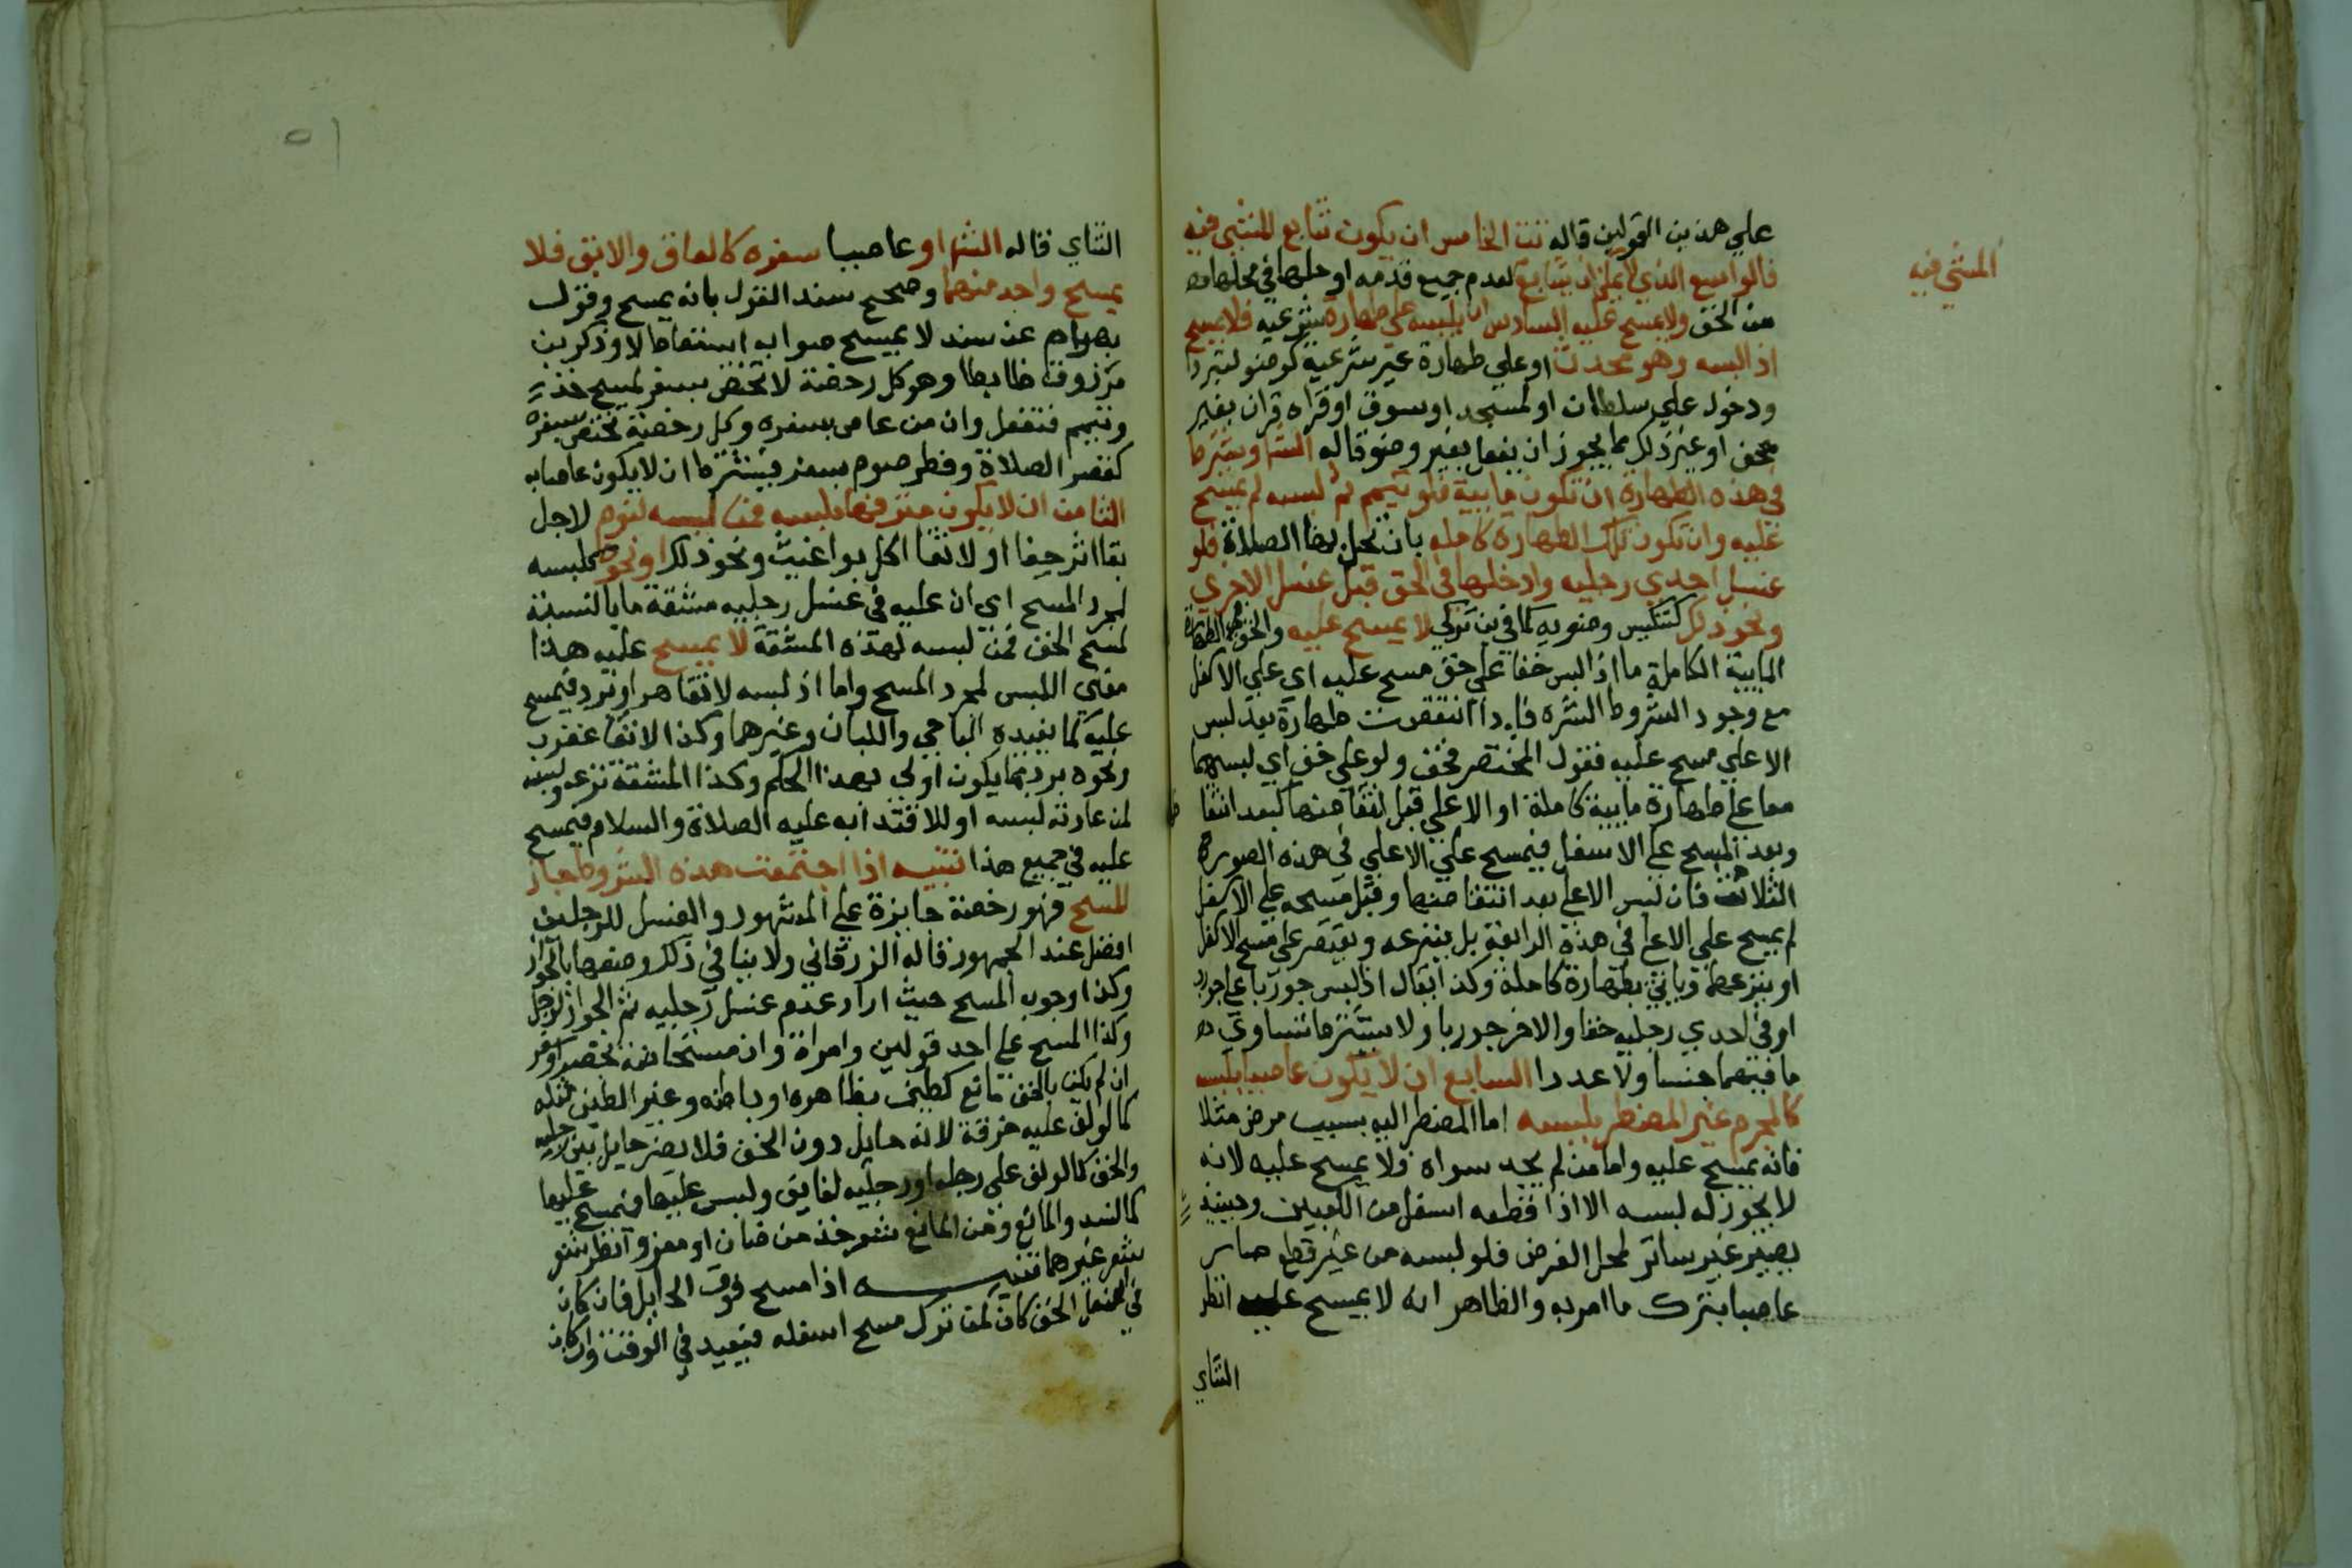 علي هذين القولين قاله تت الخامس ان يكون تتابع المشي فيه
المشي فيه
فالواسع الذي لا يمكن ان يتابع لعدم جميع قدمه او جلها في محلها
من الخف ولا يمسح عليه السادس ان يلبسه علي طهارة شرعيه فلا يمسح
اذا لبسه وهو محدث او علي طهارة غير شرعية كوضو لتبرد
ودخول علي سلطان او لمسجد او سوق او قراه قران بغير
مصحف او غير ذلك مما يجوز ان يفعل بغير وضو قاله الش ويشترط
في هذه الطهارة ان تكون مايية فلو تيمم ثم لبسه لم يمسح
عليه وان تكون تلك الطهارة كاملة بان تحل بها الصلاة فلو
غسل احدي رجليه وادخلها في الخف قبل غسل الاخري
ونحو ذلك كتنكيس وضويه كما في بن تركي لا يمسح عليه
المايية الكاملة ما اذا لبس خفا علي خف مسح عليه اي علي الاسفل
مع وجود الشروط العشره فاذا انتقضت طهارة بعد لبس
الاعلي مسح عليه فقول المختصر خف ولو علي خف اي لبسهما
معا علي طهارة مايية كاملة او الاعلي قبل انتقاضها لبعد انتقا
وبعد المسح علي الاسفل فيمسح علي الاعلي في هذه الصورة
الثلاث فان لبس الاعلي بعد انتقاضها وقبل مسحه علي الاسفل
لم يمسح علي الاعلي في هذه الرابعة بل ينزعه ويقتصر علي مسح الاسفل
او ينزعهما وياتي بطهارة كاملة وكذا يقال اذا لبس جوربا علي جورب
او في احدي رجليه خفا والاخر جوربا ولا يشترط تساوي
ما فيهما جنسا ولا عددا السابع ان لا يكون عاصيا بلبسه
كالمحرم غير المضطر بلبسه اما المضطر اليه بسبب مرض مثلا
فانه يمسح عليه واما من لم يجد سواه فلا يمسح عليه لانه
لا يجوز له لبسه الا اذا قطعه اسفل من الكعبين وحينيذ
يصير غير ساتر لمحل الفرض فلو لبسه من غير قطع صار
عاصيا بترك ما امر به والظاهر انه لا يمسح عليه انظر
التتاي
٥١
التتاي قاله الش او عاصيا سفره كالعاق والابق فلا
يمسح واحد منهما وصحح سند القول بانه يمسح وقول
بهرام عن سند لا يمسح صوابه اسقاط لا وذكر بن
مرزوق ضابطا وهو كل رخصة لا تختص بسفر كمسح خف
وتيمم فتفعل وان من عاص بسفره وكل رخصة تختص بسفره
كقصر الصلاة وفطر صوم بسفر فيشترط ان لا يكون عاصيا به
الثامن ان لا يكون مترفها بلبسه فمن لبسه لنوم لاجل
بقا اثر حنا او لاتقا اكل براغيث ونحو ذلك او نحوه كلبسه
لمجرد المسح اي ان عليه في غسل رجليه مشقة ما بالنسبة
لمسح الخف فمن لبسه لهذه المشقة لا يمسح عليه هذا
معني اللبس لمجرد المسح واما اذا لبسه لاتقا حر او برد فيمسح
عليه كما يفيده الباجي واللبان وغيرهما وكذا لاتقا عقرب
ونحوه بربما يكون اولي بهذا الحكم وكذا المشقة نزعه ولبسه
لمن عادته لبسه او للاقتدا به عليه الصلاة والسلام فيمسح
عليه في جميع هذا تنبيه اذا اجتمعت هذه الشروط جاز
المسح فهو رخصة جايزة علي المشهور والغسل للرجلين
افضل عند الجمهور قاله الزرقاني ولا ينافي ذلك وصفها بالجواز
وكذا وجوب المسح حيث اراد عدم غسل رجليه ثم الجواز لرجل
وكذا المسح علي احد قولين وامراة وان مستحاضة بحضر او سفر
ان لم يكن بالخف مانع كطين بظاهره او باطنه وغير الطين مثله
كما لو لف عليه خرقة لانه حايل دون الخف فلا يضر حايل بين رجليه
والخف كما لو لف علي رجله او رجليه لفايف ولبس عليها فيمسح عليها
كما لسند والمانع ومن المانع شعر خف من ضان او معز وانظر شعر
شعر غيرهما تنبيه اذا مسح فوق الحايل فان كان
في اسفل الخف كان كمن ترك مسح اسفله فيعيد في الوقت وان كان